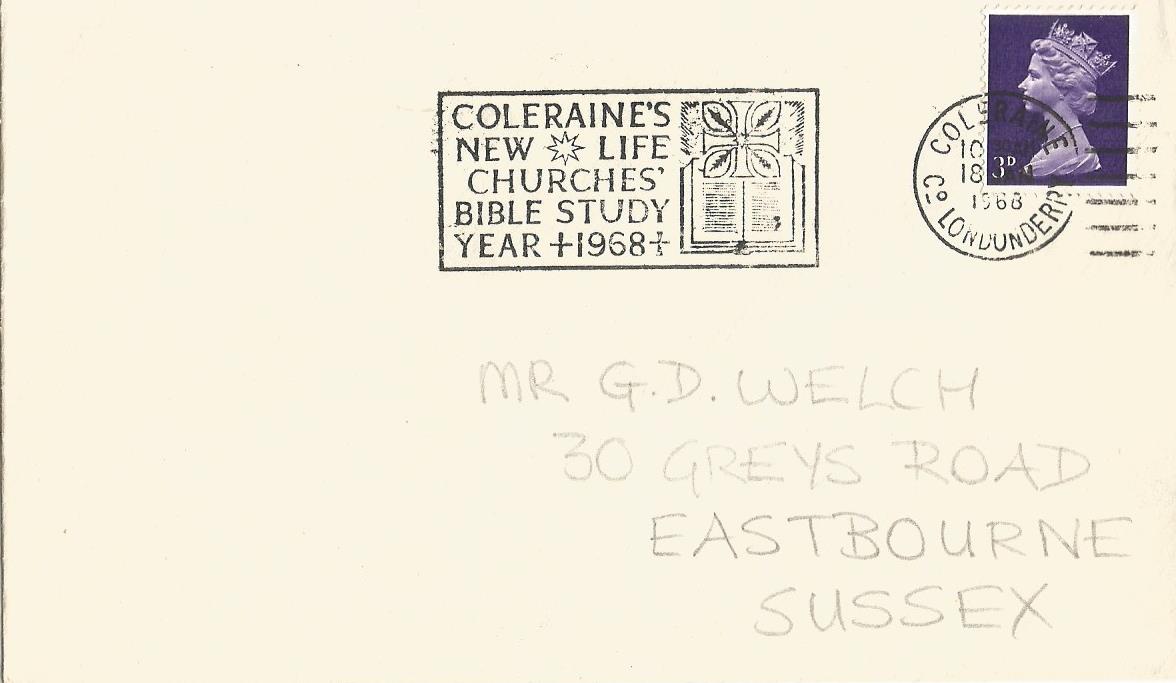 COLERAINE'S
NEW LIFE
CHURCHES'
BIBLE STUDY
YEAR +1968+
COLERAINE
10
18
1968
Co LONDONDERRY
3D
MR G.D. WELCH
30 GREYS ROAD
EASTBOURNE
SUSSEX